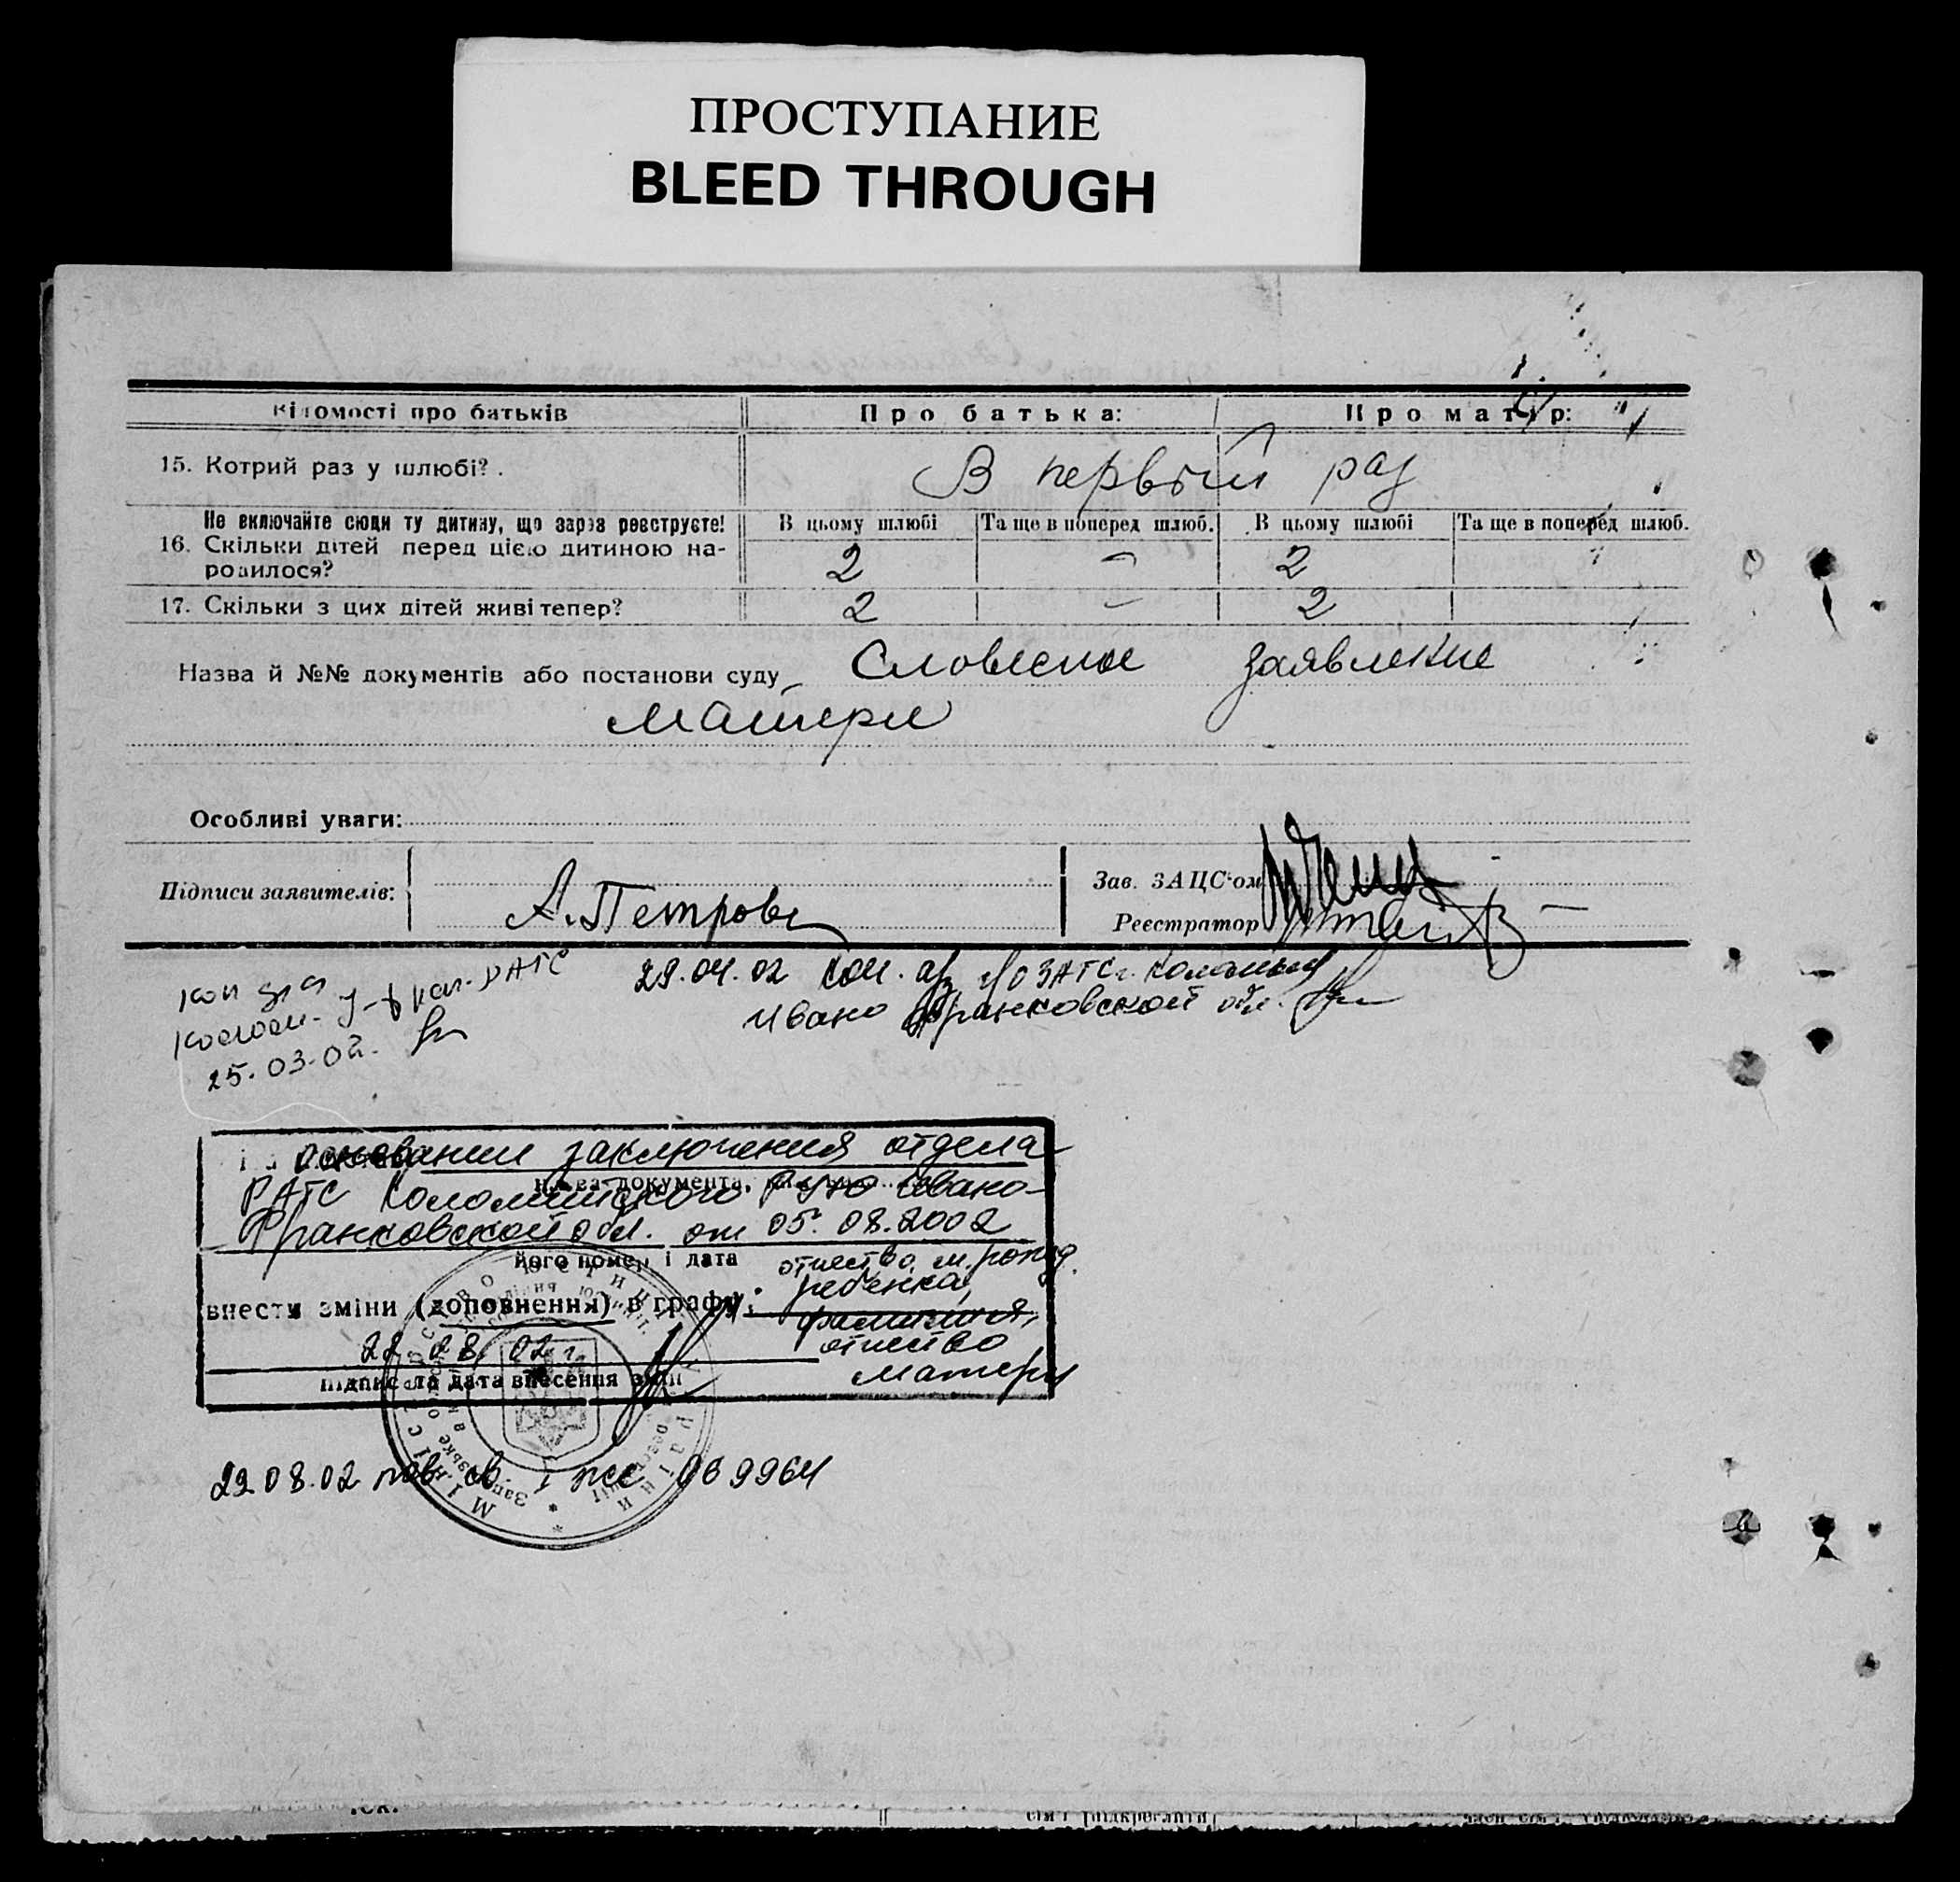 ПРОСТУПАНИЕ
BLEED THROUGH
Відомості про батьків Про батька: Про матір:
15. Котрий раз у шлюбі? . В первый раз
Не включайте сюди ту дитину, що зараз реєструєте! В цьому шлюбі Та ще в поперед шлюб. В цьому шлюбі Та ще в поперед шлюб.
16. Скільки дітей перед цією дитиною на-
родилося? 2 – 2 "
17. Скільки з цих дітей живі тепер? 2 – 2
Назва й №№ документів або постанови суду Словесное заявление
матери
Особливі уваги:
Підписи заявителів: А. Петрова
Зав. ЗАЦС'ом
Реєстратор
25.03.02.
29.04.02 ЗАГС г. Коломыя
Ивано Франковской обл.
основании заключения отдела
назва документа,
РАГС Коломийского РУЮ Ивано-
Франковской обл. от 05.08.2002
його номер і дата
внести зміни (доповнення) в графу: отчество, м. рожд.
ребенка,
фамилия,
отчество
матери
22 08 02 г.
підпис та дата внесення змін
29.08.02 пов. св. 069964